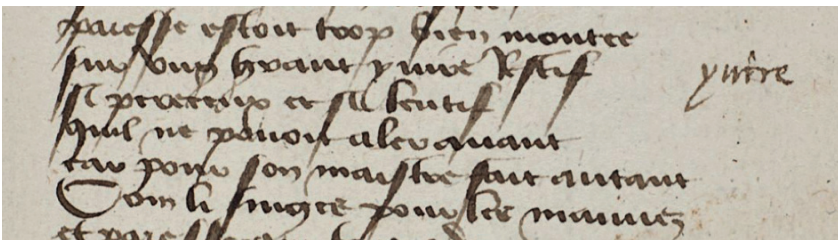 paresse estoit trop bien montee
sur vng grant yuire Restif
yuire
si pereceux et si lentif
quil ne pouoit aler auant
car pour son maistre fait autant
Com li singes pour les mauuez
et